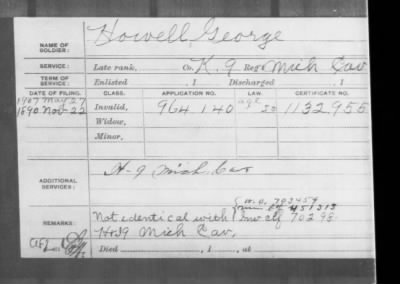 NAME OF SOLDIER: Howell, George
SERVICE: Late rank, Co. K. 9 Reg't Mich Cav
TERM OF SERVICE: Enlisted , 1 Discharged , 1
DATE OF FILING. CLASS. APPLICATION NO. LAW. CERTIFICATE NO.
1907 May 27
1890 Nov 22 Invalid, 964 140 age 1132 955
Widow,
Minor,
ADDITIONAL SERVICES: H-9 Mich. Cav
W.O. 793459
REMARKS: Not identical with Inv ctf 70298
H-39 Mich Cav,
Died , 1 , at